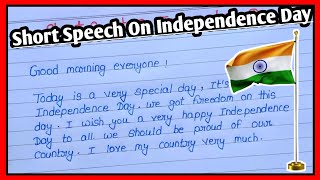 Short Speech On Independence Day
Good morning everyone!
Today is a very special day, It's
Independence Day. We got freedom on this
day. I wish you a very happy Independence
Day to all. We should be proud of our
country. I love my country very much.